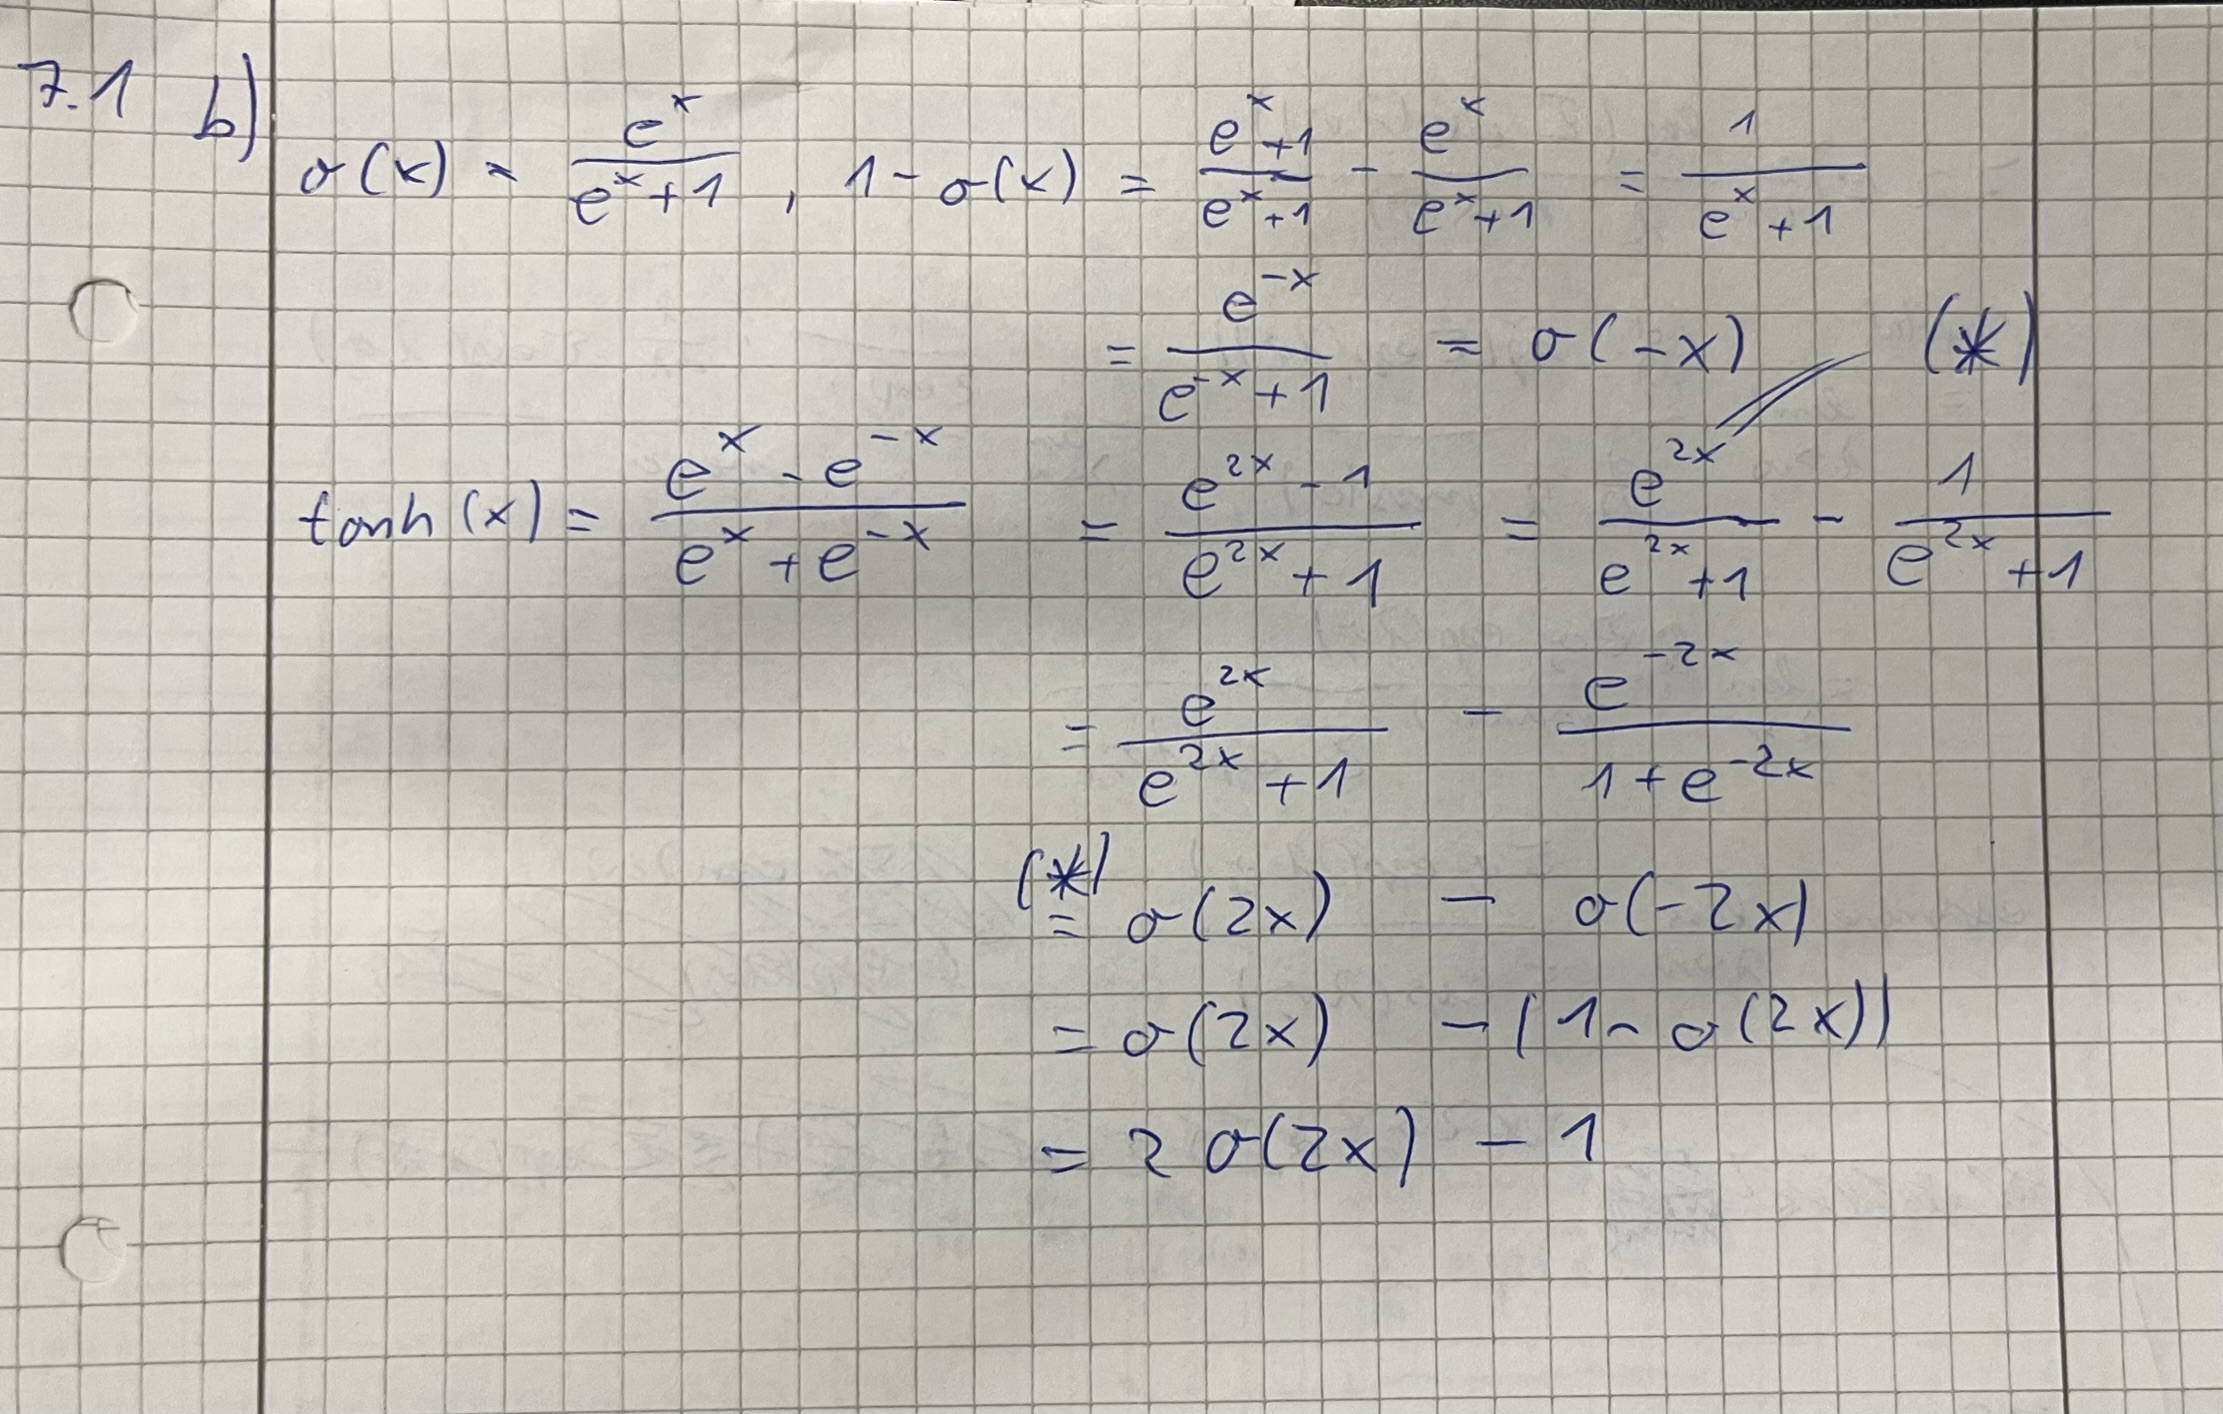 7.1 b)
σ(x) = e^x / (e^x + 1) , 1 - σ(x) = (e^x + 1) / (e^x + 1) - e^x / (e^x + 1) = 1 / (e^x + 1)
= e^{-x} / (e^{-x} + 1) = σ(-x) (*)
tanh(x) = (e^x - e^{-x}) / (e^x + e^{-x}) = (e^{2x} - 1) / (e^{2x} + 1) = e^{2x} / (e^{2x} + 1) - 1 / (e^{2x} + 1)
= e^{2x} / (e^{2x} + 1) - e^{-2x} / (1 + e^{-2x})
(*)
= σ(2x) - σ(-2x)
= σ(2x) - (1 - σ(2x))
= 2 σ(2x) - 1